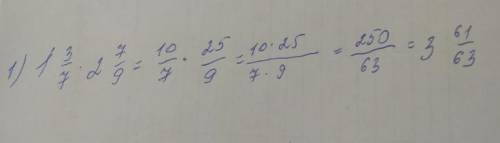 1) 1 3/7 · 2 7/9 = 10/7 · 25/9 = 10·25/7·9 = 250/63 = 3 61/63